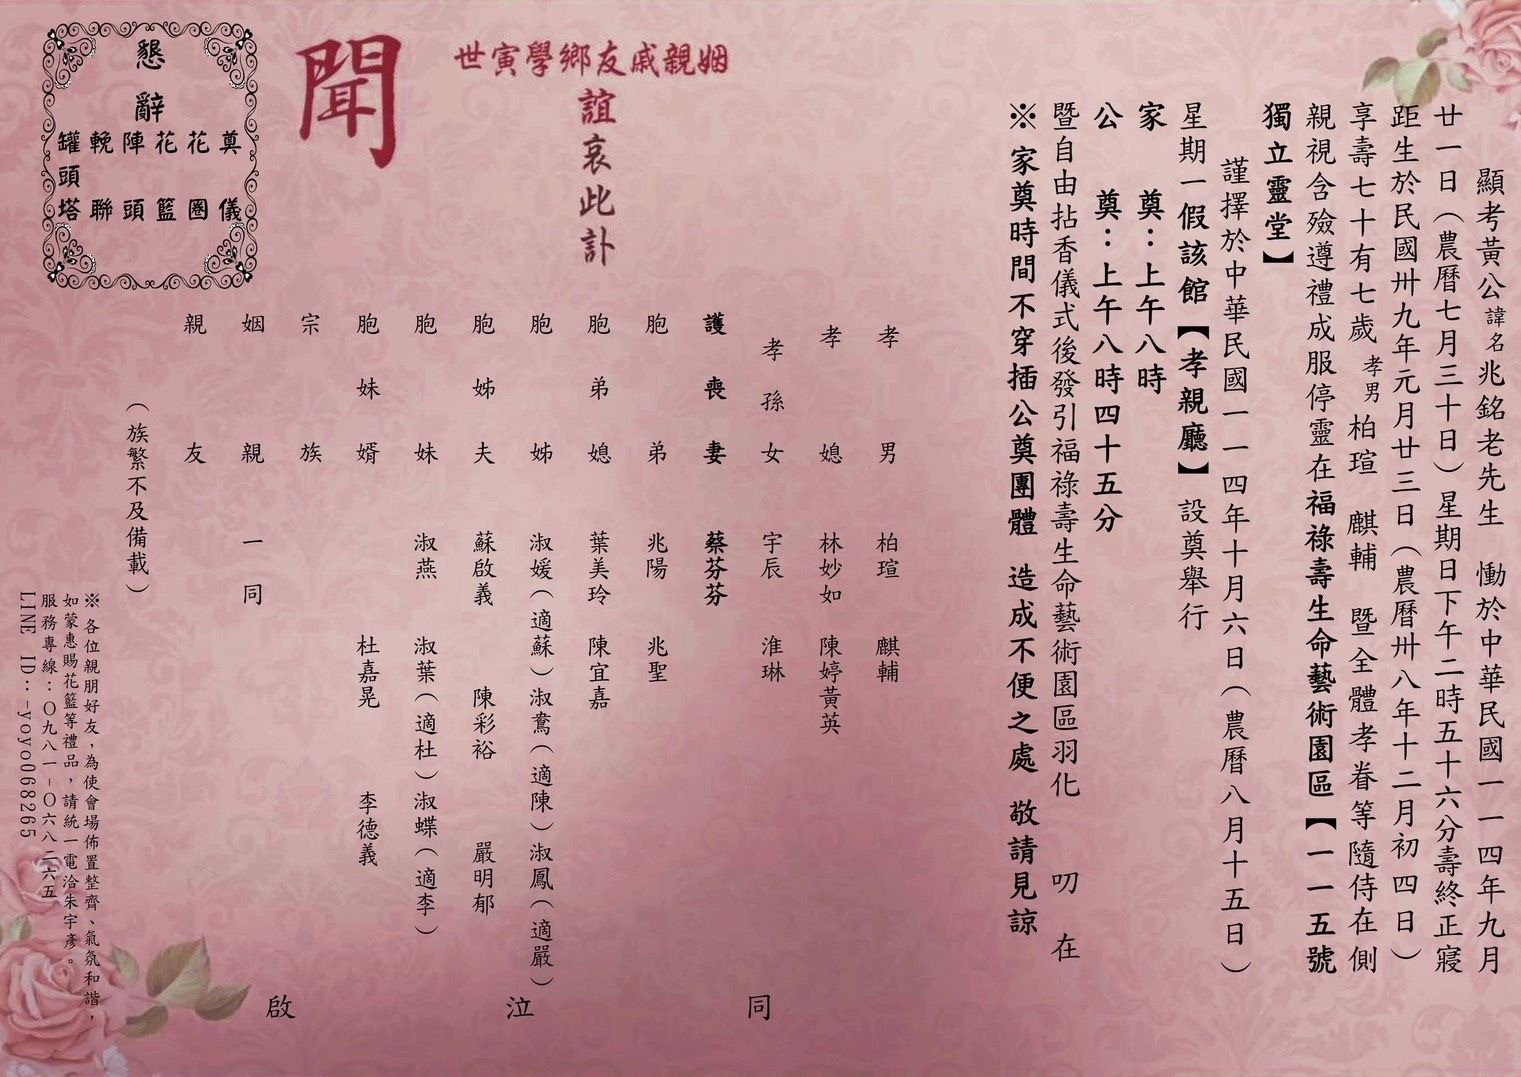 顯考黃公諱名兆銘老先生　慟於中華民國一一四年九月
廿一日（農曆七月三十日）星期日下午二時五十六分壽終正寢
距生於民國卅九年元月廿三日（農曆卅八年十二月初四日）
享壽七十有七歲 孝男柏瑄　麒輔　暨全體孝眷等隨侍在側
親視含殮遵禮成服停靈在福祿壽生命藝術園區【一一五號
獨立靈堂】
謹擇於中華民國一一四年十月六日（農曆八月十五日）
星期一假該館【孝親廳】設奠舉行
家　奠：上午八時
公　奠：上午八時四十五分
暨自由拈香儀式後發引福祿壽生命藝術園區羽化　叨　在
※家奠時間不穿插公奠團體 造成不便之處 敬請見諒
姻親戚友鄉學寅世
誼哀此訃
聞
懇辭
奠儀
花圈
花籃
陣頭
輓聯
罐頭塔
孝男　柏瑄　麒輔
孝媳　林妙如　陳婷黃英
孝孫女　宇辰　淮琳
護喪妻　蔡芬芬
胞弟　兆陽　兆聖
胞弟媳　葉美玲　陳宜嘉
胞姊　淑媛（適蘇）淑鴦（適陳）淑鳳（適嚴）
胞姊夫　蘇啟義　陳彩裕　嚴明郁
胞妹　淑燕　淑葉（適杜）淑蝶（適李）
胞妹婿　杜嘉晃　李德義
宗族
姻親　一同
親友
（族繁不及備載）
同　泣　啟
※各位親朋好友，為使會場佈置整齊、氣氛和諧，
如蒙惠賜花籃等禮品，請統一電洽朱宇彥。
服務專線：〇九八一-〇六八二六五
LINE ID：-yoyo068265